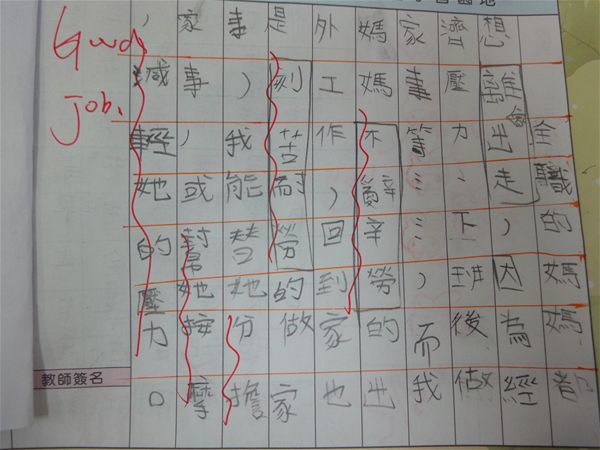 園地
全職的媽媽都
想離會出走，因為經
濟壓力、下班後做
家事等……，而我
媽媽不辭辛勞的出
外工作，回到家也
是刻苦耐勞的做家
事，我能替她分擔
家事，或幫她按摩
，減輕她的壓力。
Good
job.
教師簽名